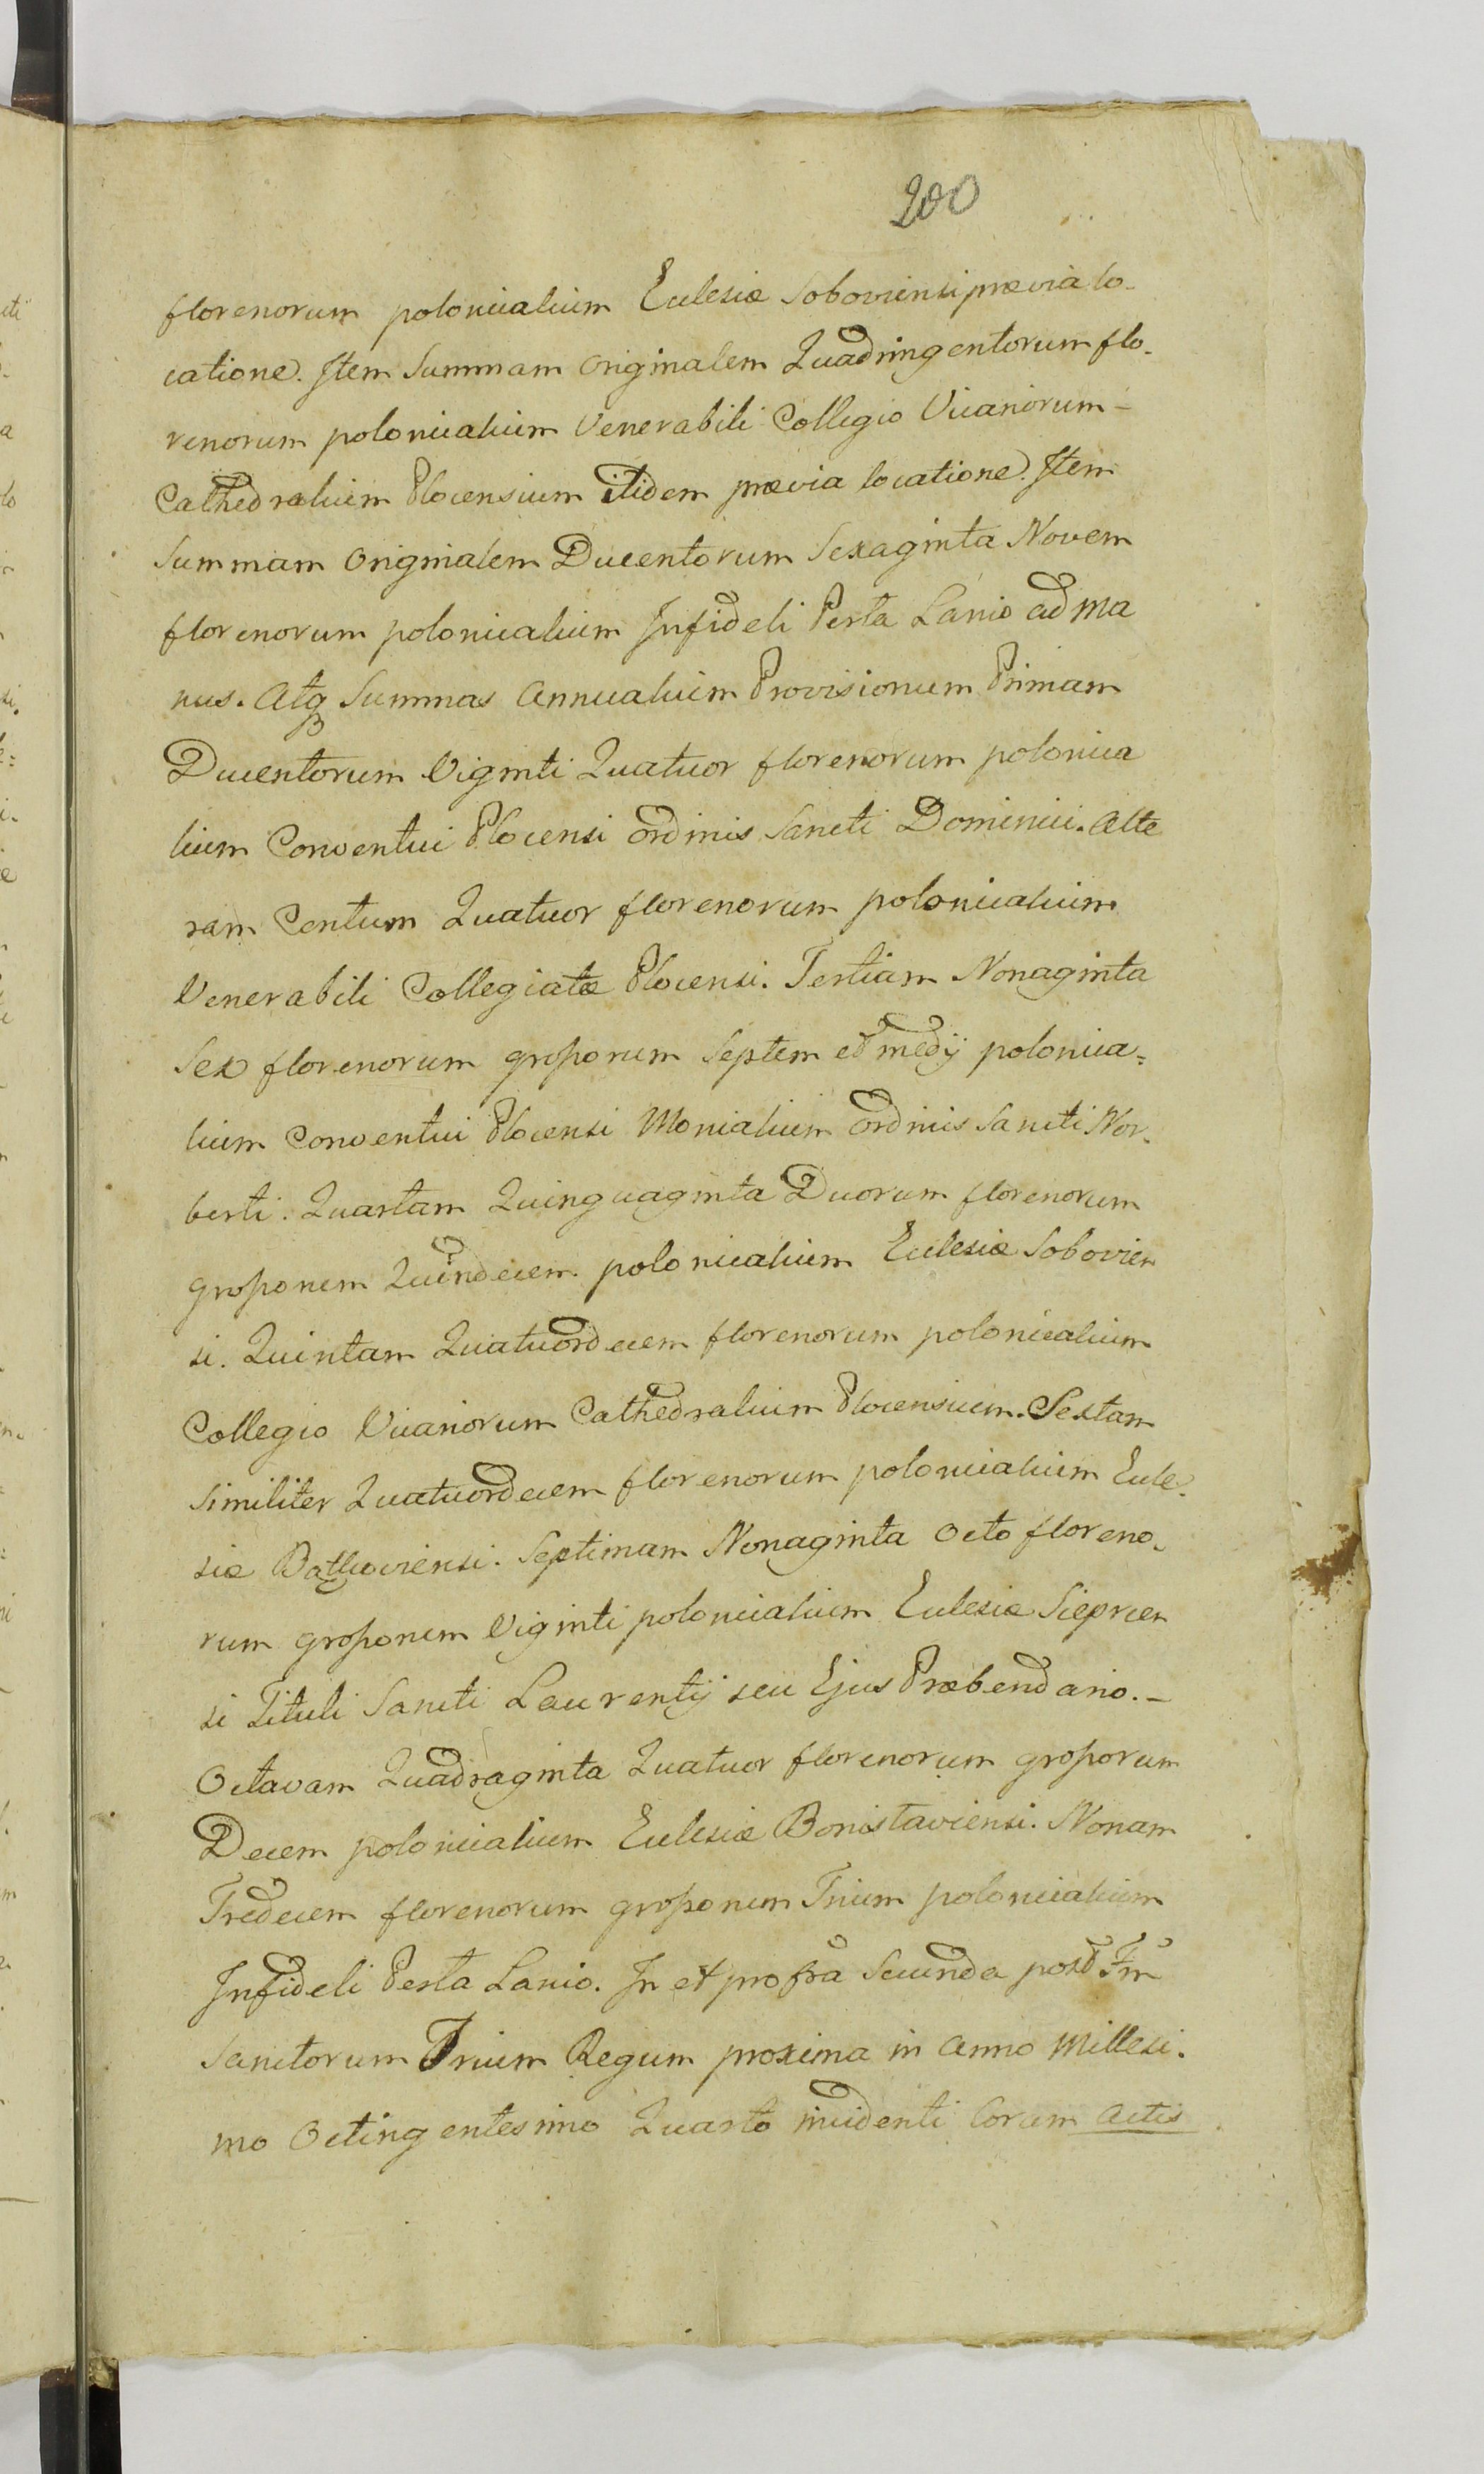 200
florenorum polonicalium Ecclesiæ Soboviensi prævia lo-
catione. Item Summam Originalem Quadringentorum flo-
renorum polonicalium Venerabili Collegio Vicariorum -
Cathedralium Plocensium itidem prævia locatione. Item
Summam Originalem Ducentorum Sexaginta Novem
florenorum polonicalium Infideli Perla Lanio ad ma
nus. Atq Summas Annualium Provisionum Primam
Ducentorum Viginti Quatuor florenorum polonica
lium Conventui Plocensi Ordinis Sancti Dominici. Alte
ram Centum Quatuor florenorum polonicalium
Venerabili Collegiatæ Plocensi. Tertiam Nonaginta
Sex florenorum grossorum Septem et medij polonica=
lium Conventui Plocensi Monialium Ordinis Sancti Nor-
berti. Quartam Quinquaginta Duorum florenorum
grossorum Quindecem polonicalium Ecclesiæ Sobovien
si. Quintam Quatuordecem florenorum polonicalium
Collegio Vicariorum Cathedralium Plocensium. Sextam
Similiter Quatuordecem florenorum polonicalium Eccle-
siæ Septimam Nonaginta Octo floreno-
rum grossorum Viginti polonicalium Ecclesiæ Sieprcen
si Tituli Sancti Laurentij seu Ejus Præbendario. -
Octavam Quadraginta Quatuor florenorum grossorum
Decem polonicalium Ecclesiæ Bonislaviensi. Nonam
Tredecem florenorum grossorum Trium polonicalium
Infideli Perla Lanio. In et pro fra Secunda post Fm
Sanctorum Trium Regum proxima in Anno Millesi-
mo Octingentesimo Quarto incidenti Coram Actis